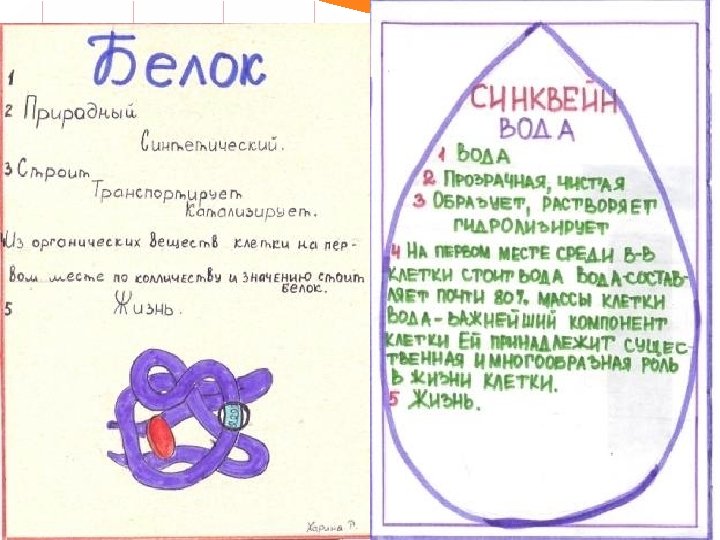 1 Белок
2 Природный
Синтетический.
3 Строит
Транспортирует
Катализирует.
4 Из органических веществ клетки на пер-
вом месте по колличеству и значению стоит
белок.
5 Жизнь.
Харина Р.
СИНКВЕЙН
ВОДА
1 ВОДА
2 ПРОЗРАЧНАЯ, ЧИСТАЯ
3 ОБРАЗУЕТ, РАСТВОРЯЕТ
ГИДРОЛИЗИРУЕТ
4 НА ПЕРВОМ МЕСТЕ СРЕДИ В-В
КЛЕТКИ СТОИТ ВОДА ВОДА-СОСТАВ-
ЛЯЕТ ПОЧТИ 80% МАССЫ КЛЕТКИ
ВОДА - ВАЖНЕЙШИЙ КОМПОНЕНТ
КЛЕТКИ ЕЙ ПРИНАДЛЕЖИТ СУЩЕС-
ТВЕННАЯ И МНОГООБРАЗНАЯ РОЛЬ
В ЖИЗНИ КЛЕТКИ.
5 ЖИЗНЬ.